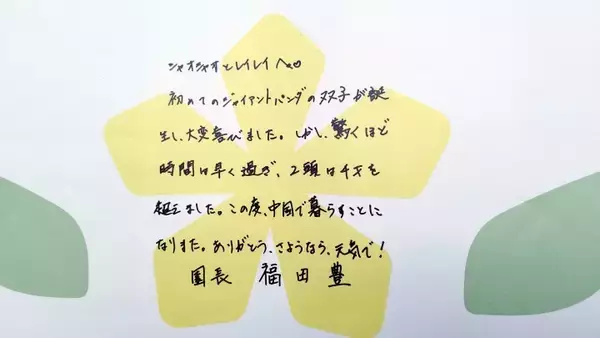 シャオシャオとレイレイへ♡
初めてのジャイアントパンダの双子が誕
生し、大変喜びました。しかし、驚くほど
時間は早く過ぎ、2頭は4才を
超えました。この度、中国で暮らすことに
なりました。ありがとう、さようなら、元気で!
園長 福田豊